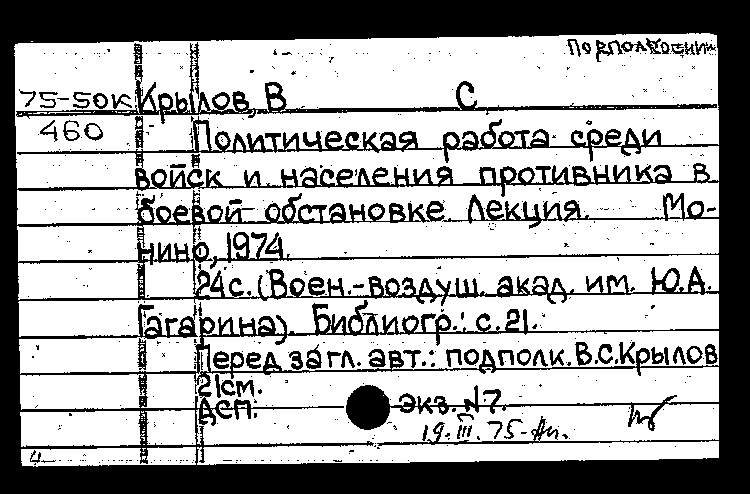 подполковник
75-50к Крылов, В С
460 Политическая работа среди
войск и населения противника в
боевой обстановке. Лекция. Мо-
нино, 1974.
24с. (Воен.-воздуш. акад. им. Ю.А.
Гагарина). Библиогр.: с. 21.
Перед загл. авт.: подполк. В.С. Крылов
21см.
ДСП. экз. №7.
19.III.75-
4